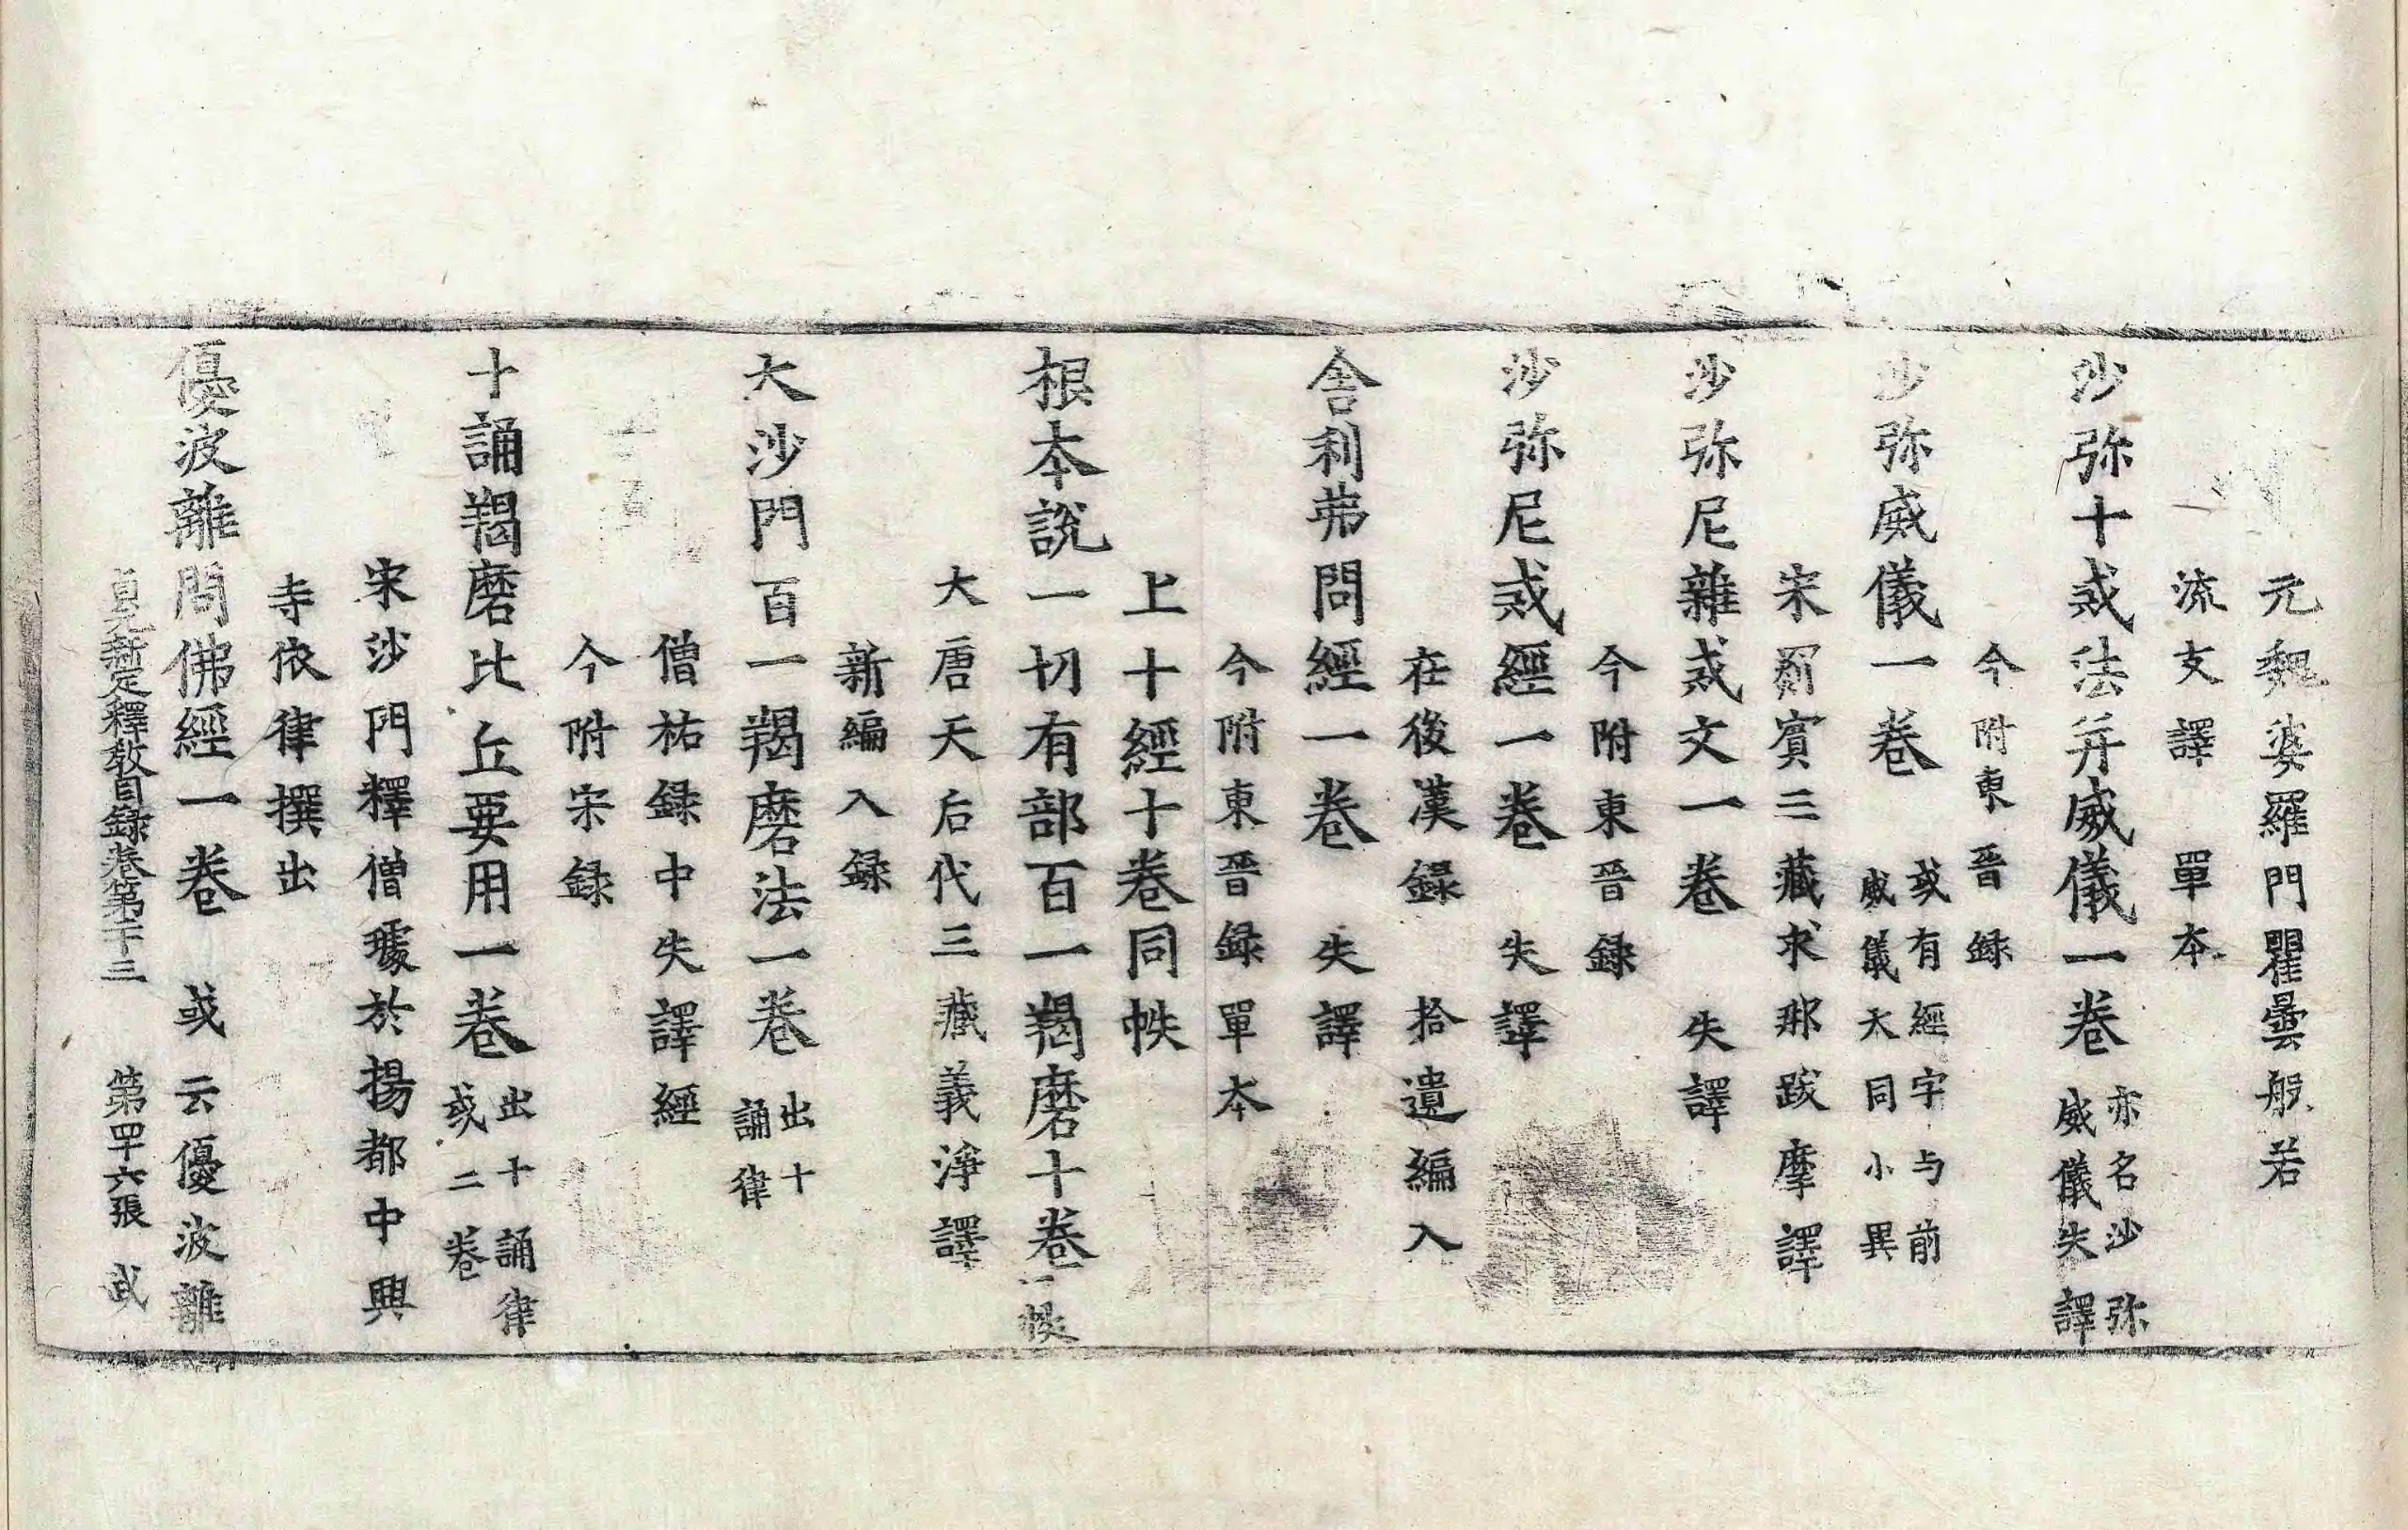 元魏婆羅門瞿曇般若
流支譯　單本
沙弥十戒法并威儀一卷　亦名沙弥威儀失譯
今附東晉録
沙弥威儀一卷　或有經字与前威儀大同小異
宋罽賓三藏求那跋摩譯
沙弥尼雜戒文一卷　失譯
今附東晉録
沙弥尼戒經一卷　失譯
在後漢録　拾遺編入
舍利弗問經一卷　失譯
今附東晉録單本
上十經十卷同帙
根本說一切有部百一羯磨十卷　一帙
大唐天后代三藏義淨譯
新編入録
大沙門百一羯磨法一卷　出十誦律
僧祐録中失譯經
今附宋録
十誦羯磨比丘要用一卷　出十誦律或二卷
宋沙門釋僧璩於揚都中興
寺依律撰出
優波離問佛經一卷　或云優波離
貞元新定釋教目録卷第二十三　第四十六張　武